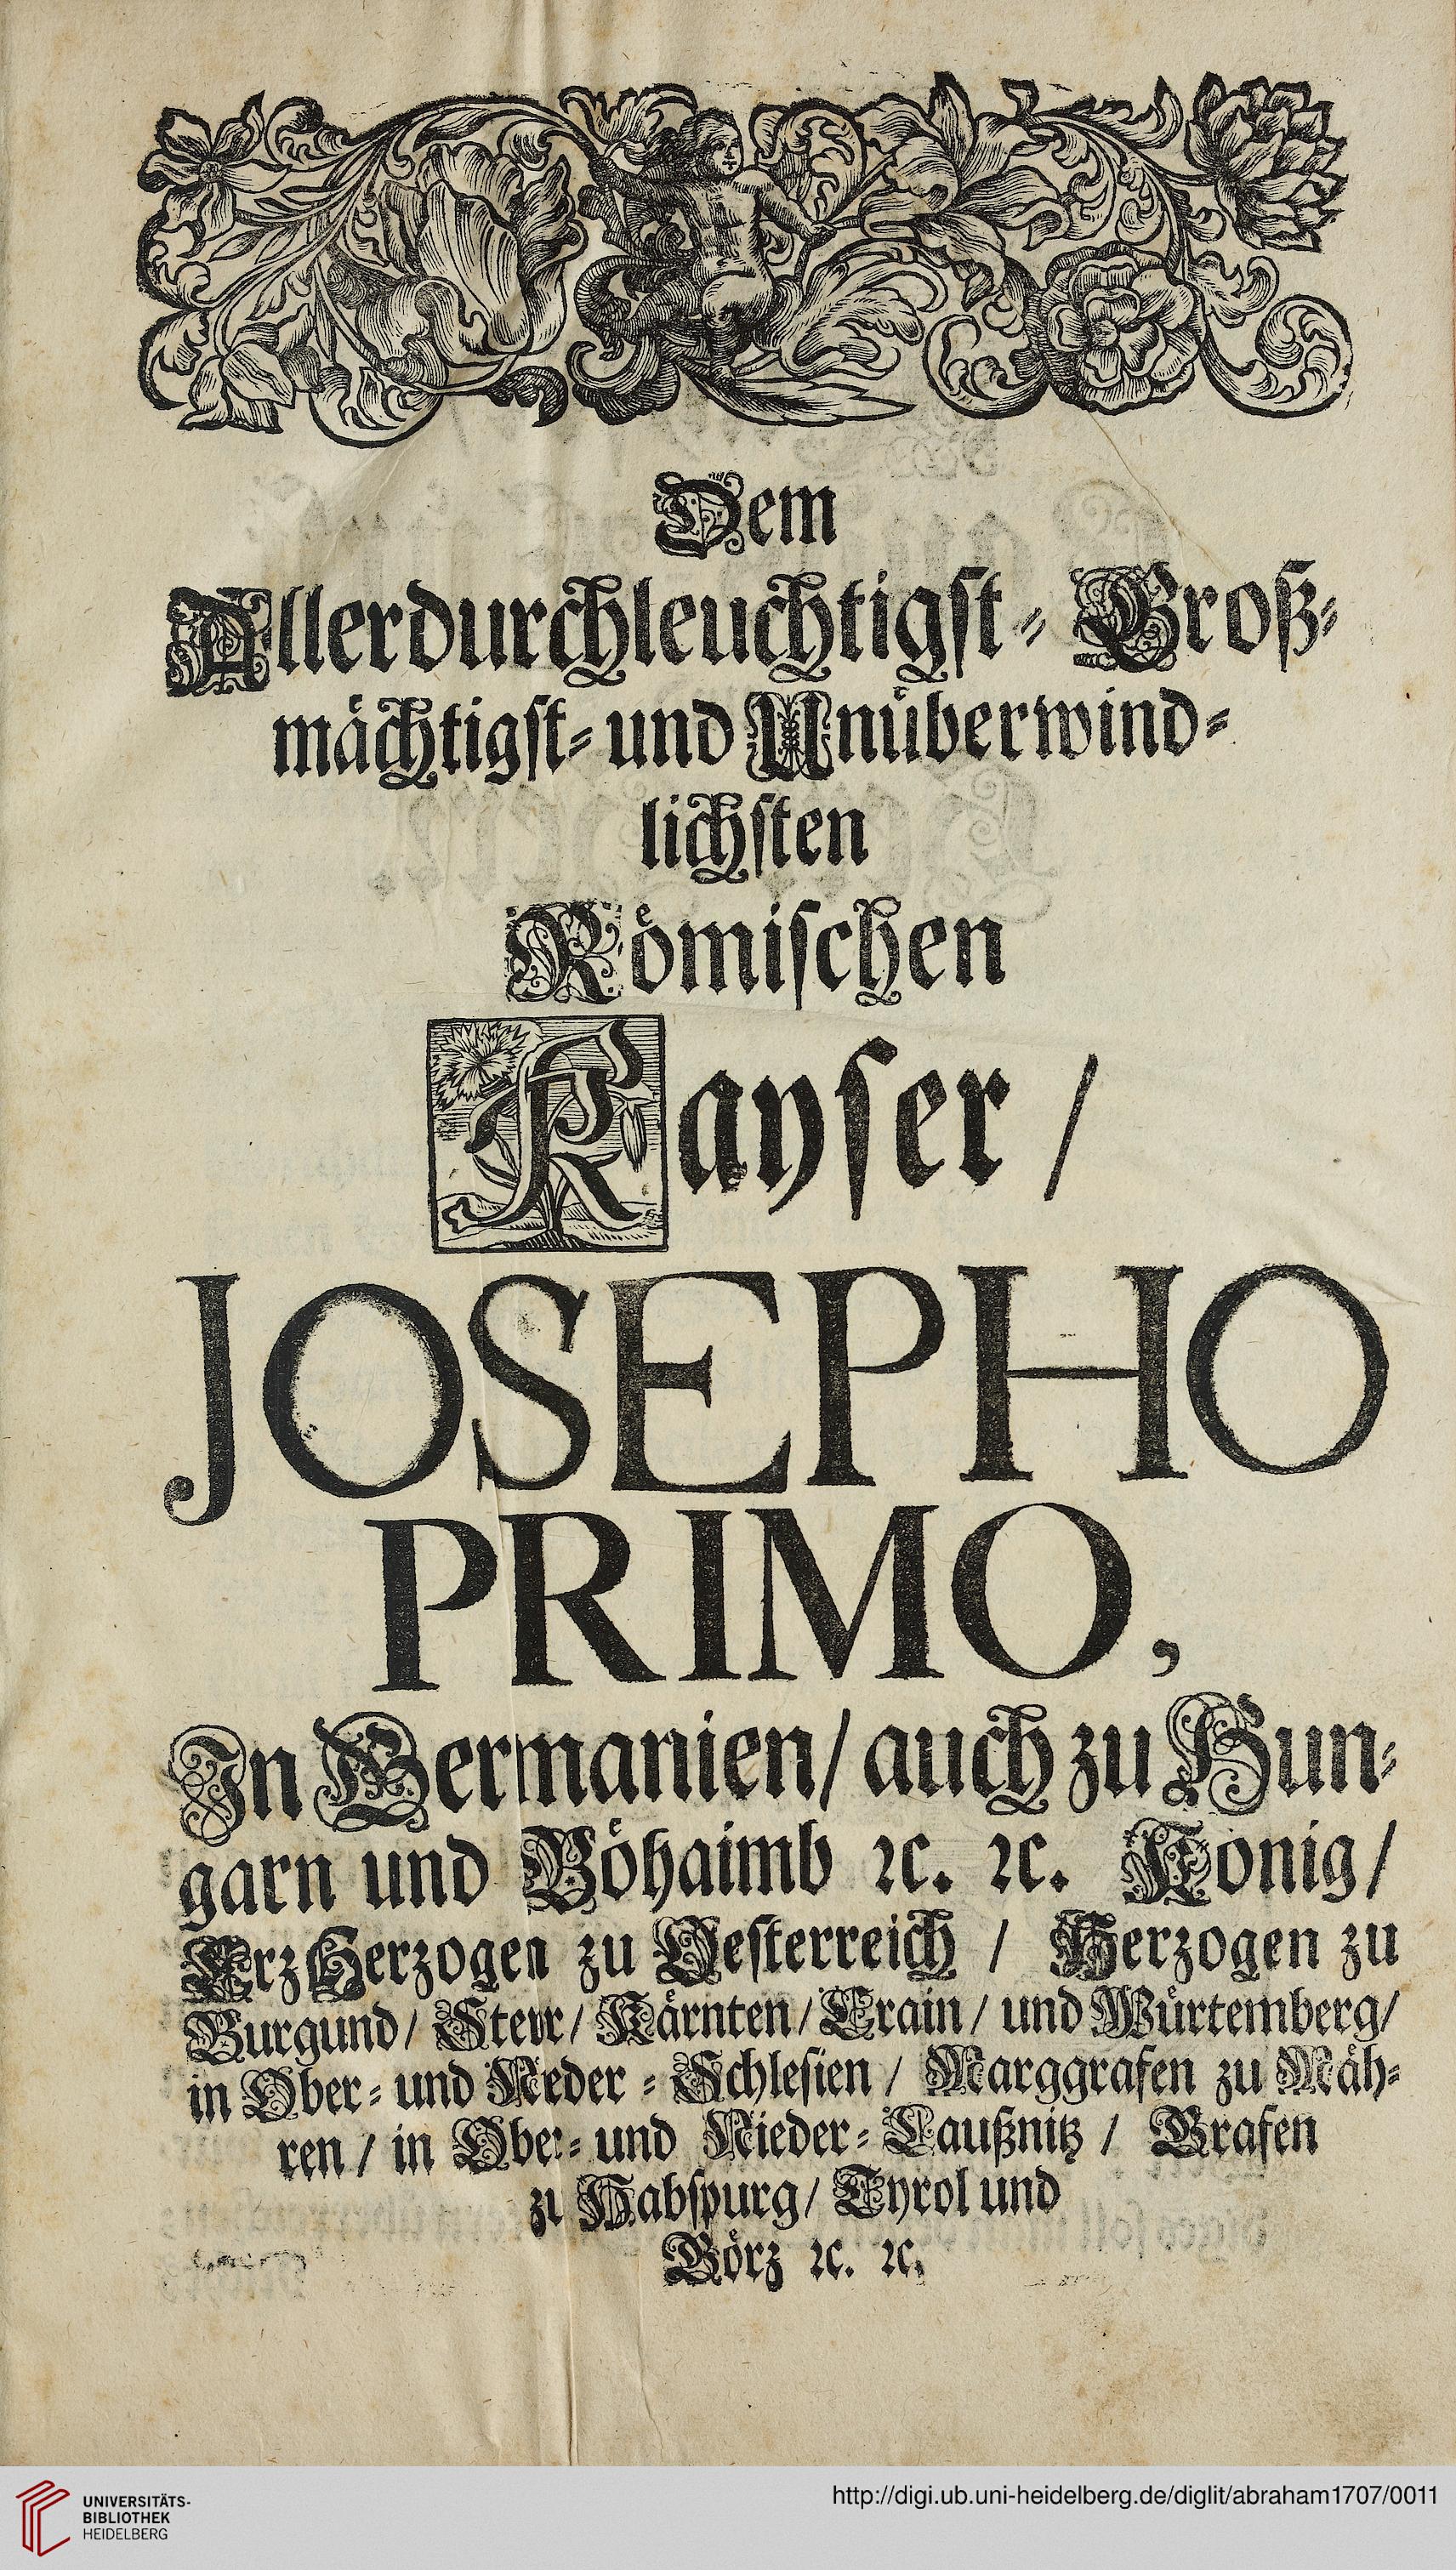 Dem
Allerdurchleuchtigst⸗ Groß⸗
mächtigst⸗ und Unüberwind⸗
lichsten
Römischen
Kayser /
JOSEPHO
PRIMO,
In Germanien / auch zu Hun⸗
garn und Böhaimb ꝛc. ꝛc. König /
ErzHerzogen zu Oesterreich / Herzogen zu
Burgund / Steyr / Kärnten / Crain / und Würtemberg /
in Ober⸗ und Nieder⸗Schlesien / Marggrafen zu Mäh⸗
ren / in Ober⸗ und Nieder⸗Laußnitz / Grafen
zu Habspurg / Tyrol und
Görz ꝛc. ꝛc.
UNIVERSITÄTS-
BIBLIOTHEK
HEIDELBERG
http://digi.ub.uni-heidelberg.de/diglit/abraham1707/0011